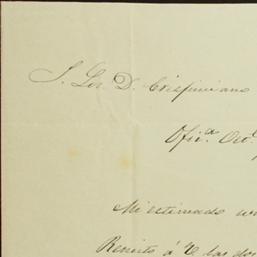 S. Lor. D. Crispiniano
Ofic.ª Oct.
Mi estimado
Remito á V. las dos